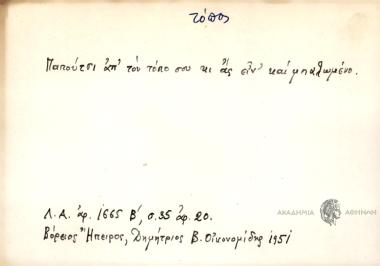 τόπος
Παπούτσι ἀπ' τὸν τόπο σου κι ἂς εἶν' καὶ μπαλωμένο.
ΑΚΑΔΗΜΙΑ ΑΘΗΝΩΝ
Λ. Α. ἀρ. 1665 Β', σ. 35 ἀρ. 20.
Βόρειος Ἤπειρος, Δημήτριος Β. Οἰκονομίδης 1951